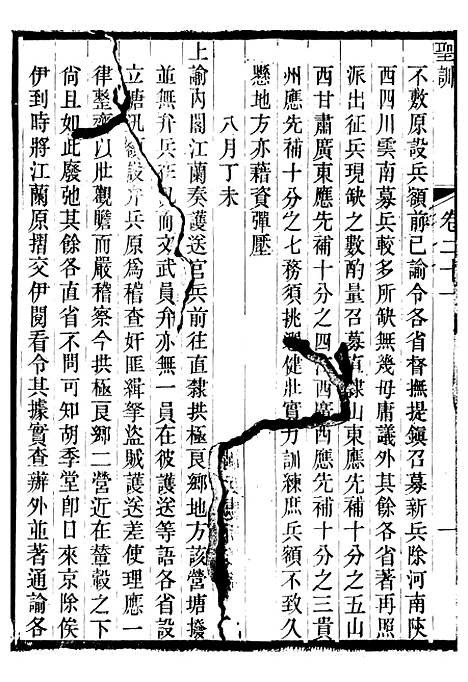 聖訓
卷二十一
不敷原設兵額前已諭令各省督撫提鎮召募新兵除河南陝
西四川雲南募兵較多所缺無幾毋庸議外其餘各省著再照
派出征兵現缺之數酌量召募直隸山東應先補十分之五山
西甘肅廣東應先補十分之四江西廣西應先補十分之三貴
州應先補十分之七務須挑選健壯實力訓練庶兵額不致久
懸地方亦藉資彈壓
八月丁未
上諭內閣江蘭奏護送官兵前往直隸拱極良鄉地方該營塘撥
並無弁兵在汛而文武員弁亦無一員在彼護送等語各省設
立塘汛額設弁兵原為稽查奸匪緝拏盜賊護送差使理應一
律整齊以壯觀瞻而嚴稽察今拱極良鄉二營近在輦轂之下
尚且如此廢弛其餘各直省不問可知胡季堂卽日來京除俟
伊到時將江蘭原摺交伊閱看令其據實查辦外並著通諭各